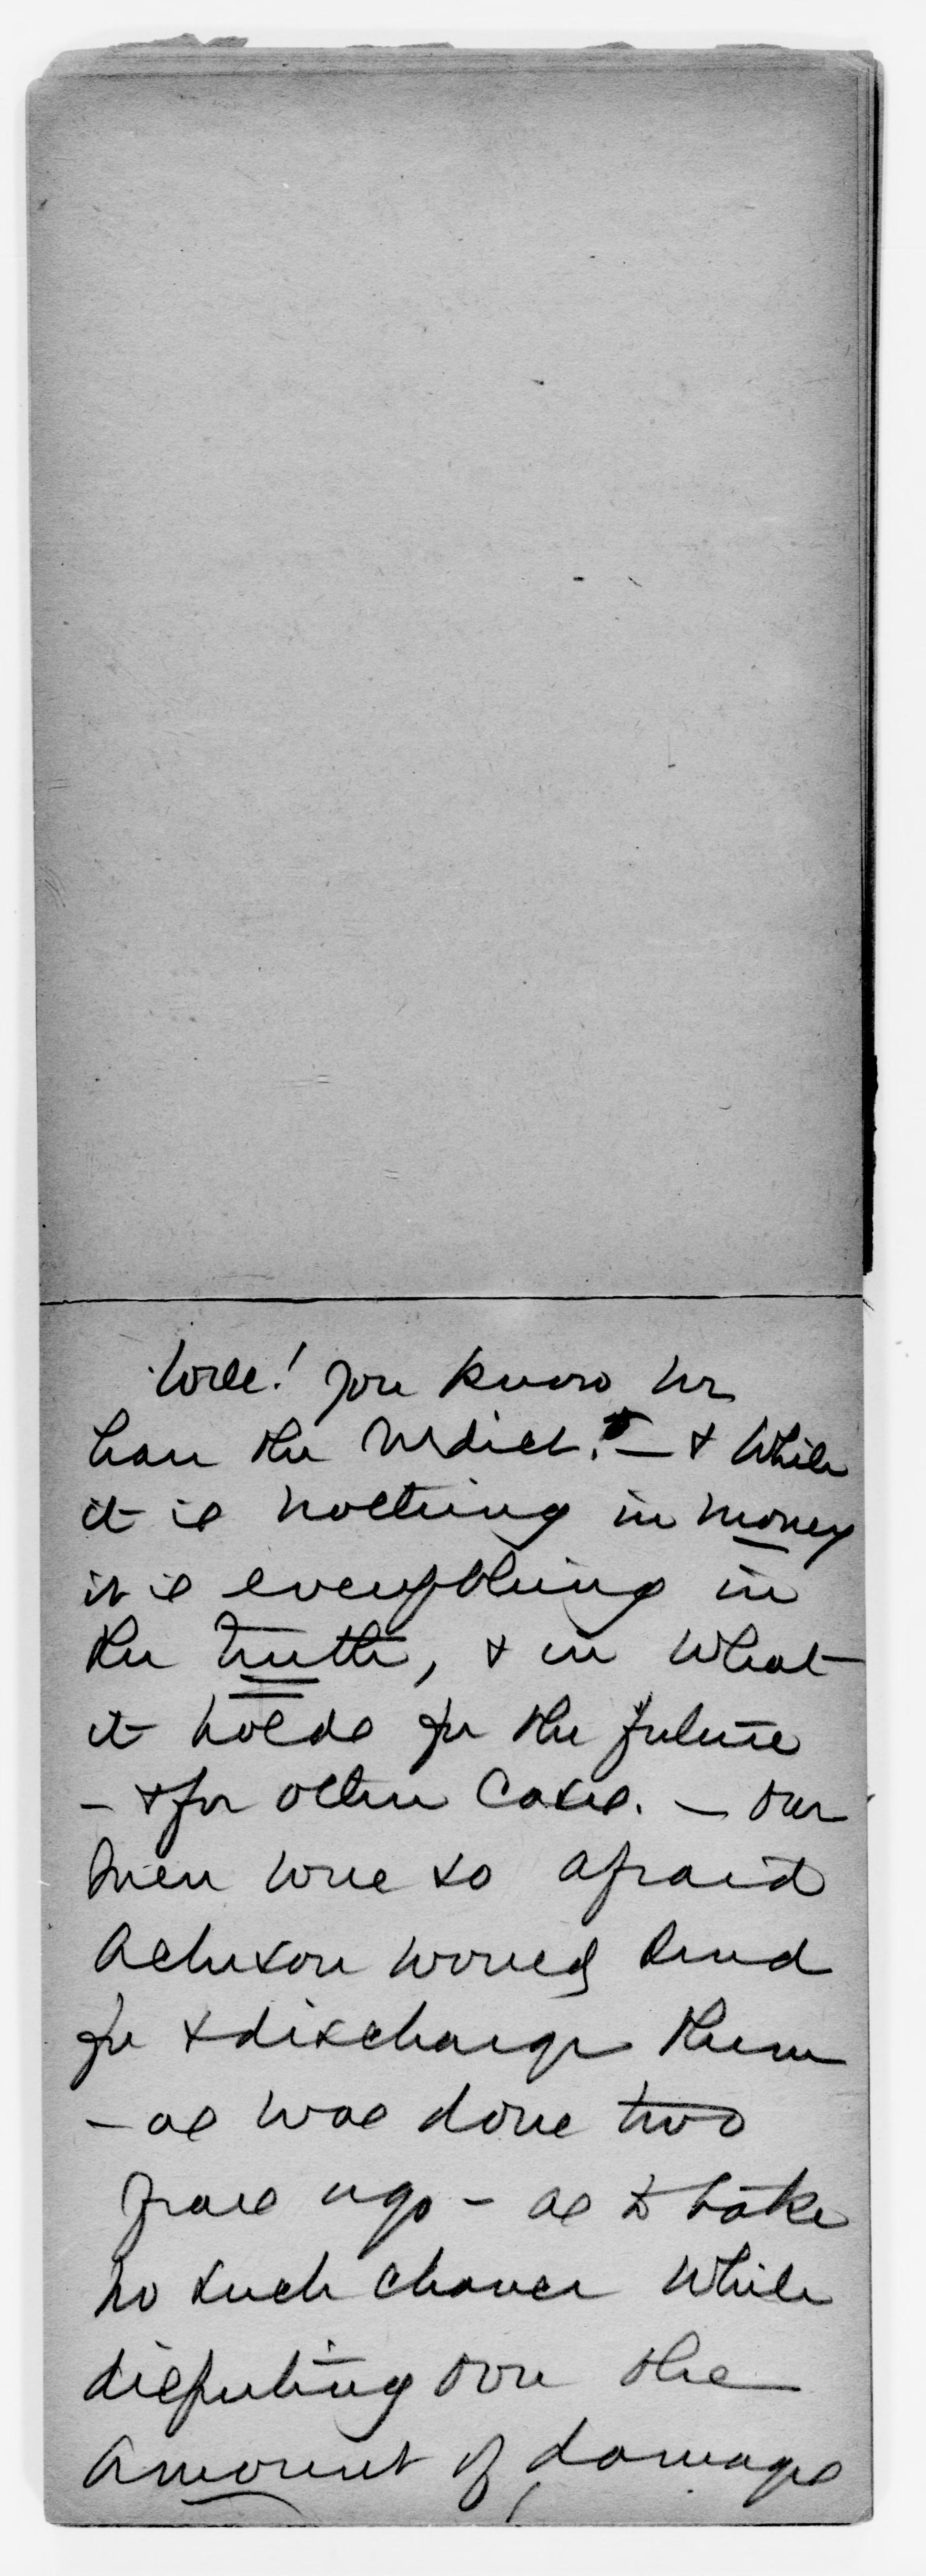 Well! you know we
have the verdict. — & while
it is nothing in money
it is everything in
the truth, & in what
it holds for the future
- & for other cases. — Our
men were so afraid
Acheson would send
for & discharge them
- as was done two
years ago - as to take
no such chance while
disputing over the
amount of damages